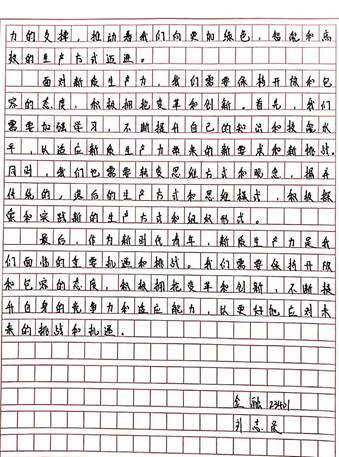 力的支撑，推动着我们向更加绿色、智能和高
效的生产方式迈进。
面对新质生产力，我们需要保持开放和包
容的态度，积极拥抱变革和创新。首先，我们
需要加强学习，不断提升自己的知识和技能水
平，以适应新质生产力带来的新要求和新挑战。
同时，我们也需要转变思维方式和观念，摒弃
传统的，落后的生产方式和思维模式，积极探
索和实践新的生产方式和组织形式。
最后，作为新时代青年，新质生产力是我
们面临的重要机遇和挑战。我们需要保持开放
和包容的态度，积极拥抱变革和创新，不断提
升自身的竞争力和适应能力，以更好地应对未
来的挑战和机遇。
金融23401
刘志